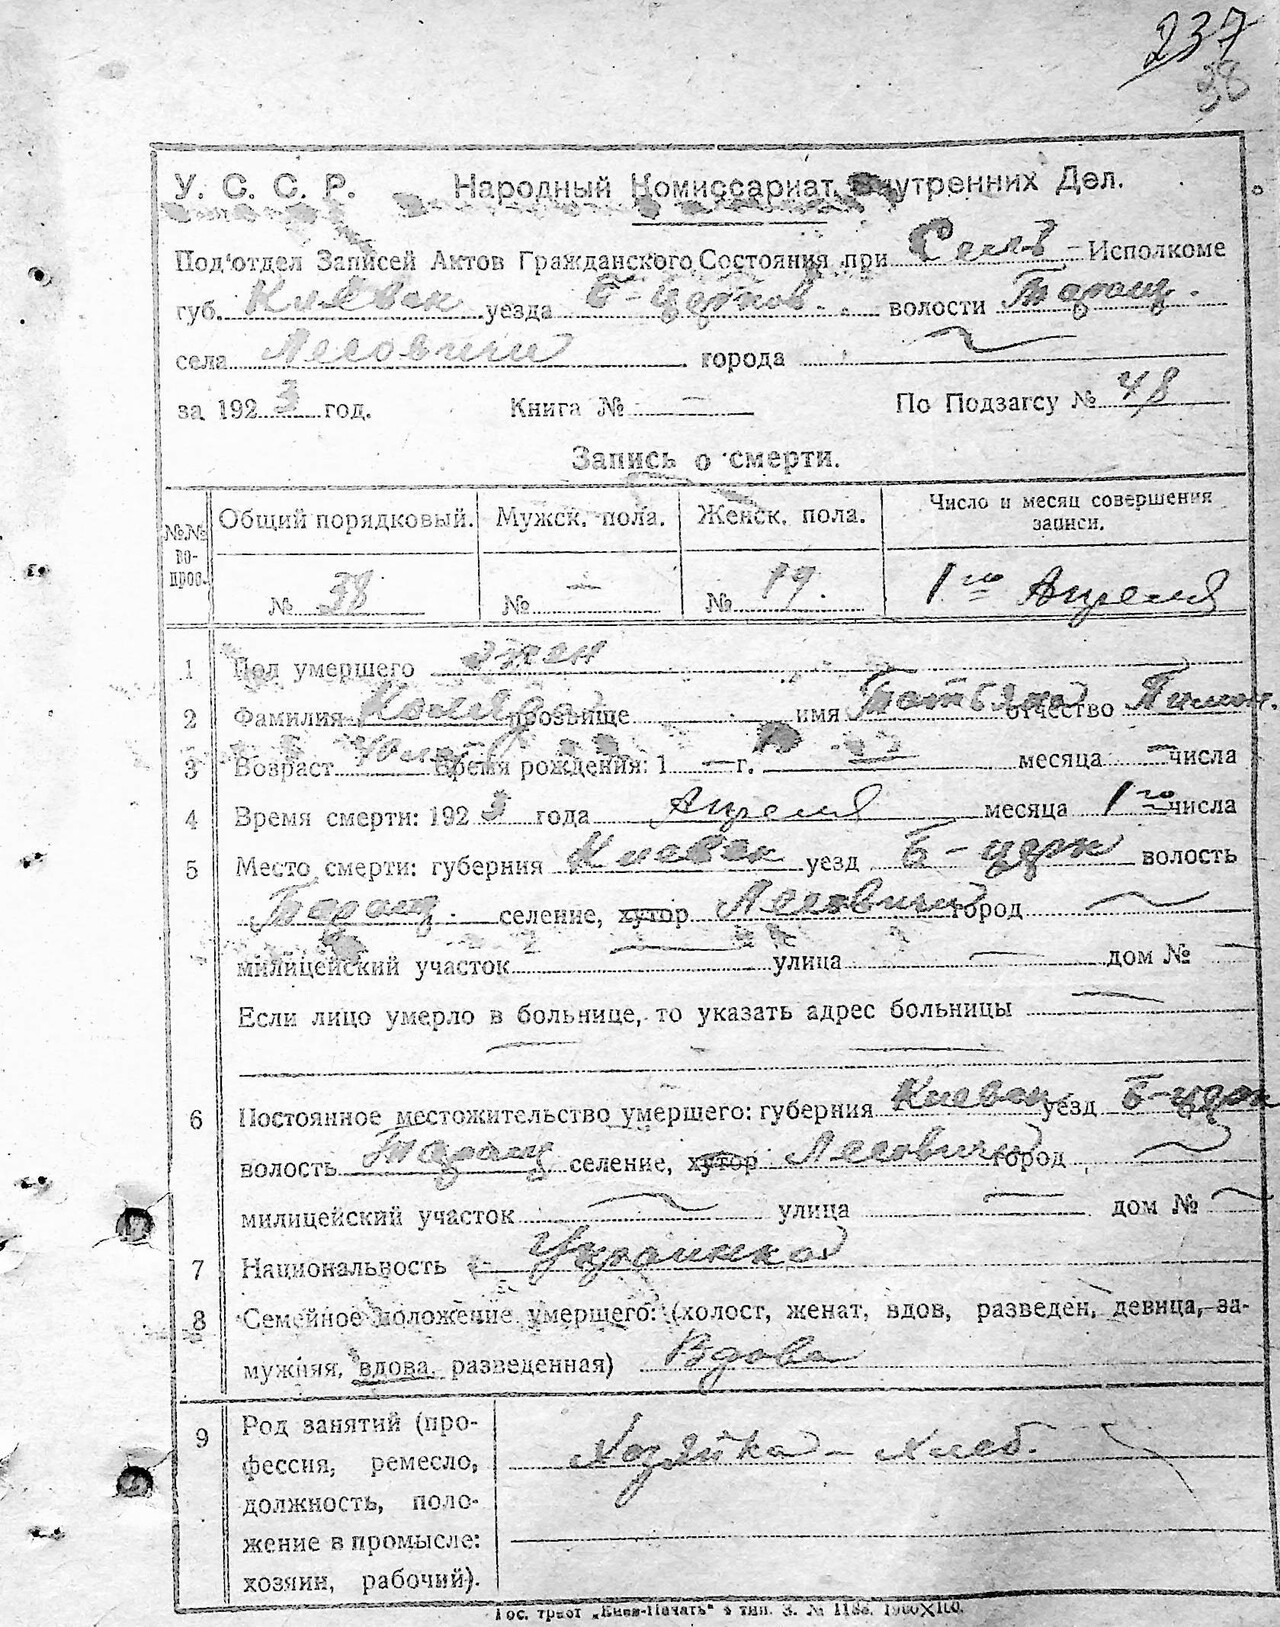 237
38
У. С. С. Р. Народный Комиссариат Внутренних Дел.
Под'отдел Записей Актов Гражданского Состояния при Сель - Исполкоме
губ. Киевск уезда Б-Церков. волости Таращ.
села Лесовичи города
за 1923 год. Книга № — По Подзагсу № 48
Запись о смерти.
№№ во-прос. Общий порядковый. Мужск. пола. Женск. пола. Число и месяц совершения записи.
№ 38 № — № 19. 1го Апреля
1 Пол умершего жен
2 Фамилия Коляда прозвище имя Татьяна отчество Пимон.
3 Возраст 40 лет Время рождения: 1 — г. — месяца — числа
4 Время смерти: 1923 года Апреля месяца 1го числа
5 Место смерти: губерния Киевск уезд Б-церк волость
Таращ. селение, хутор Лесовичи город
милицейский участок — улица — дом № —
Если лицо умерло в больнице, то указать адрес больницы —
6 Постоянное местожительство умершего: губерния Киевск уезд Б-церк
волость Таращ селение, хутор Лесовичи город
милицейский участок улица — дом №
7 Национальность Украинка
8 Семейное положение умершего: (холост, женат, вдов, разведен, девица, за-
мужняя, вдова, разведенная) Вдова
9 Род занятий (про-
фессия, ремесло, Хозяйка - хлеб.
должность, поло-
жение в промысле:
хозяин, рабочий).
Гос. трест „Киев-Печать" 4 тип. З. № 1188. 1900×100.